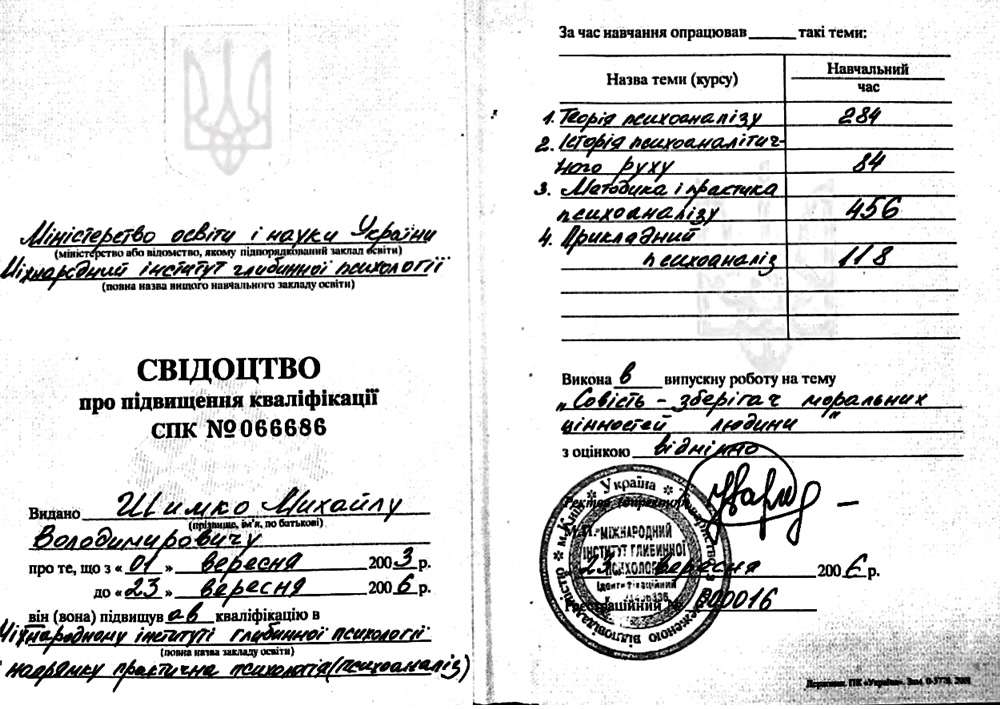 Міністерство освіти і науки України
(міністерство або відомство, якому підпорядкований заклад освіти)
Міжнародний інститут глибинної психології
(повна назва вищого навчального закладу освіти)
СВІДОЦТВО
про підвищення кваліфікації
СПК №066686
Видано Шимко Михайлу
(прізвище, ім'я, по батькові)
Володимировичу
про те, що з «01» вересня 2003 р.
до «23» вересня 2006 р.
він (вона) підвищував кваліфікацію в
Міжнародному інституті глибинної психології
(повна назва закладу освіти)
напрямку практична психологія (психоаналіз)
За час навчання опрацював такі теми:
Назва теми (курсу)
Навчальний
час
1. Теорія психоаналізу 284
2. Історія психоаналітич-
ного руху 84
3. Методика і практика
психоаналізу 456
4. Прикладний
психоаналіз 118
Виконав випускну роботу на тему
„Совість - зберігач моральних
цінностей людини"
з оцінкою відмінно
Україна
м.Київ
МІЖНАРОДНИЙ
ІНСТИТУТ ГЛИБИННОЇ
ПСИХОЛОГІЇ
Ідентифікаційний
23 вересня 2006 р.
Реєстраційний № 000016
Державн. ПК «Україна». Зам. 0-3778. 2001